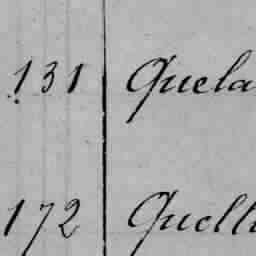 131 Quela
172 Quelt